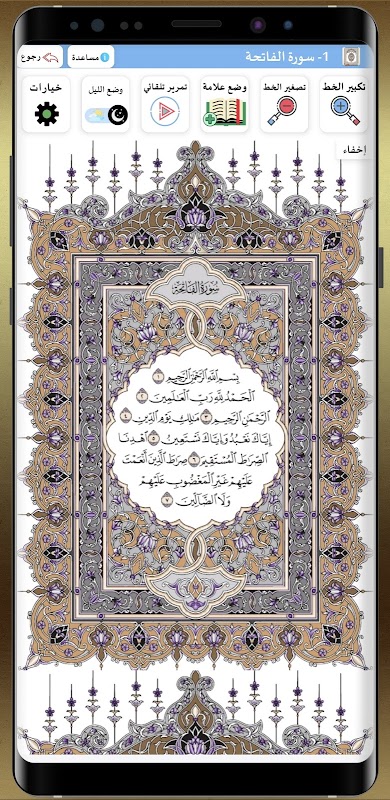 1- سورة الفاتحة
مساعدة
رجوع
تكبير الخط
تصغير الخط
وضع علامة
تمرير تلقائي
وضع الليل
خيارات
إخفاء
سُورَةُ الفَاتِحَةِ
بِسْمِ اللَّهِ الرَّحْمَٰنِ الرَّحِيمِ ١
الْحَمْدُ لِلَّهِ رَبِّ الْعَالَمِينَ ٢
الرَّحْمَٰنِ الرَّحِيمِ ٣ مَالِكِ يَوْمِ الدِّينِ ٤
إِيَّاكَ نَعْبُدُ وَإِيَّاكَ نَسْتَعِينُ ٥ اهْدِنَا
الصِّرَاطَ الْمُسْتَقِيمَ ٦ صِرَاطَ الَّذِينَ أَنْعَمْتَ
عَلَيْهِمْ غَيْرِ الْمَغْضُوبِ عَلَيْهِمْ
وَلَا الضَّالِّينَ ٧